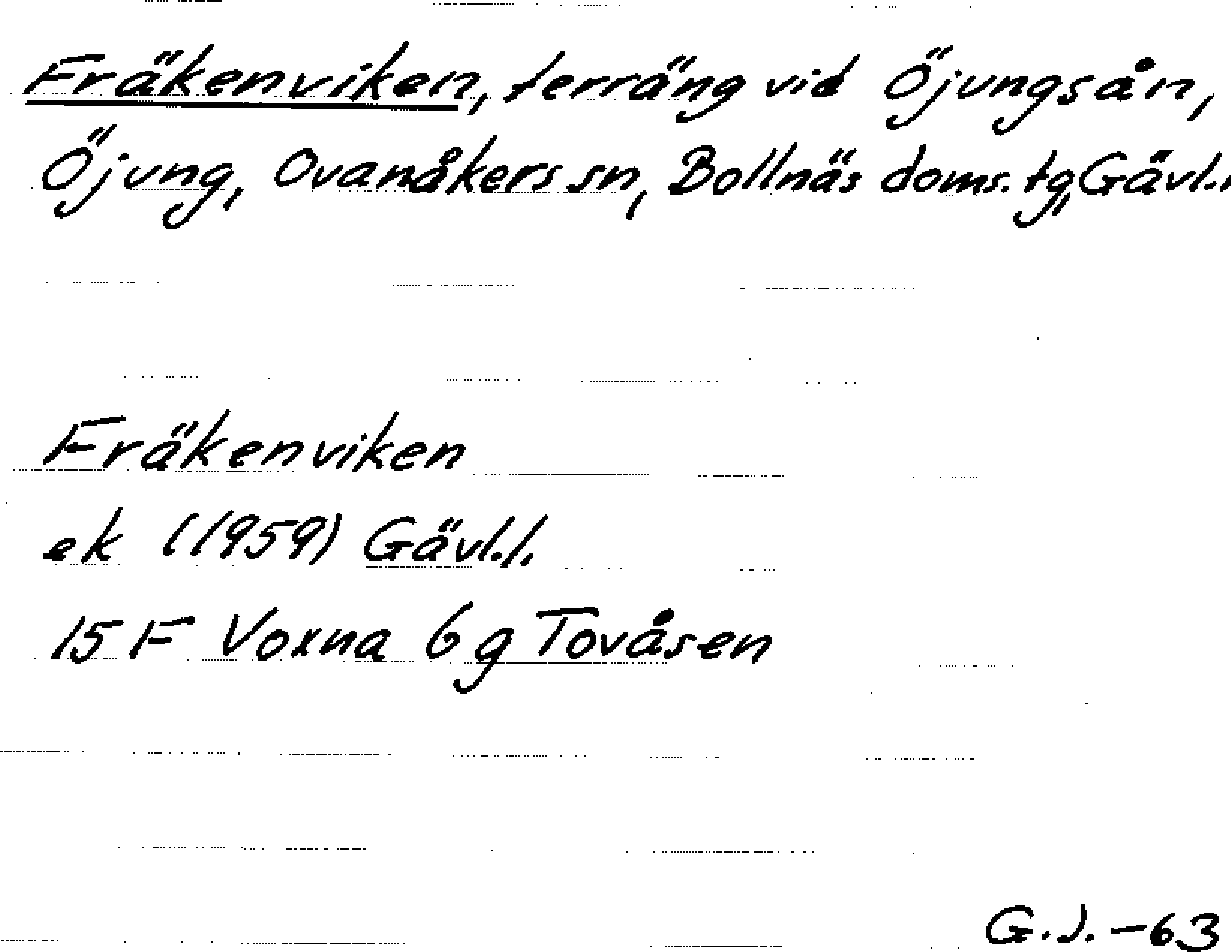 Fräkenviken, terräng vid Öjungsån,
Öjung, Ovanåkers sn, Bollnäs doms. tg, Gävl.l
Fräkenviken
ek (1959) Gävl.l.
15 F Voxna 6 g Tovåsen
G.J. -63